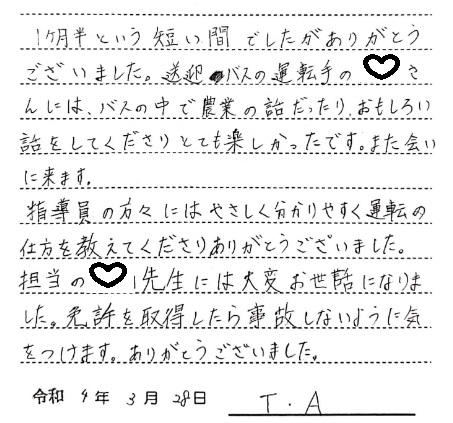 1ヶ月半という短い間でしたがありがとう
ございました。送迎バスの運転手の♡さ
んには、バスの中で農業の話だったり、おもしろい
話をしてくださりとても楽しかったです。また会い
に来ます。
指導員の方々にはやさしく分かりやすく運転の
仕方を教えてくださりありがとうございました。
担当の♡先生には大変お世話になりま
した。免許を取得したら事故しないように気
をつけます。ありがとうございました。
令和 4年 3月 28日 T.A